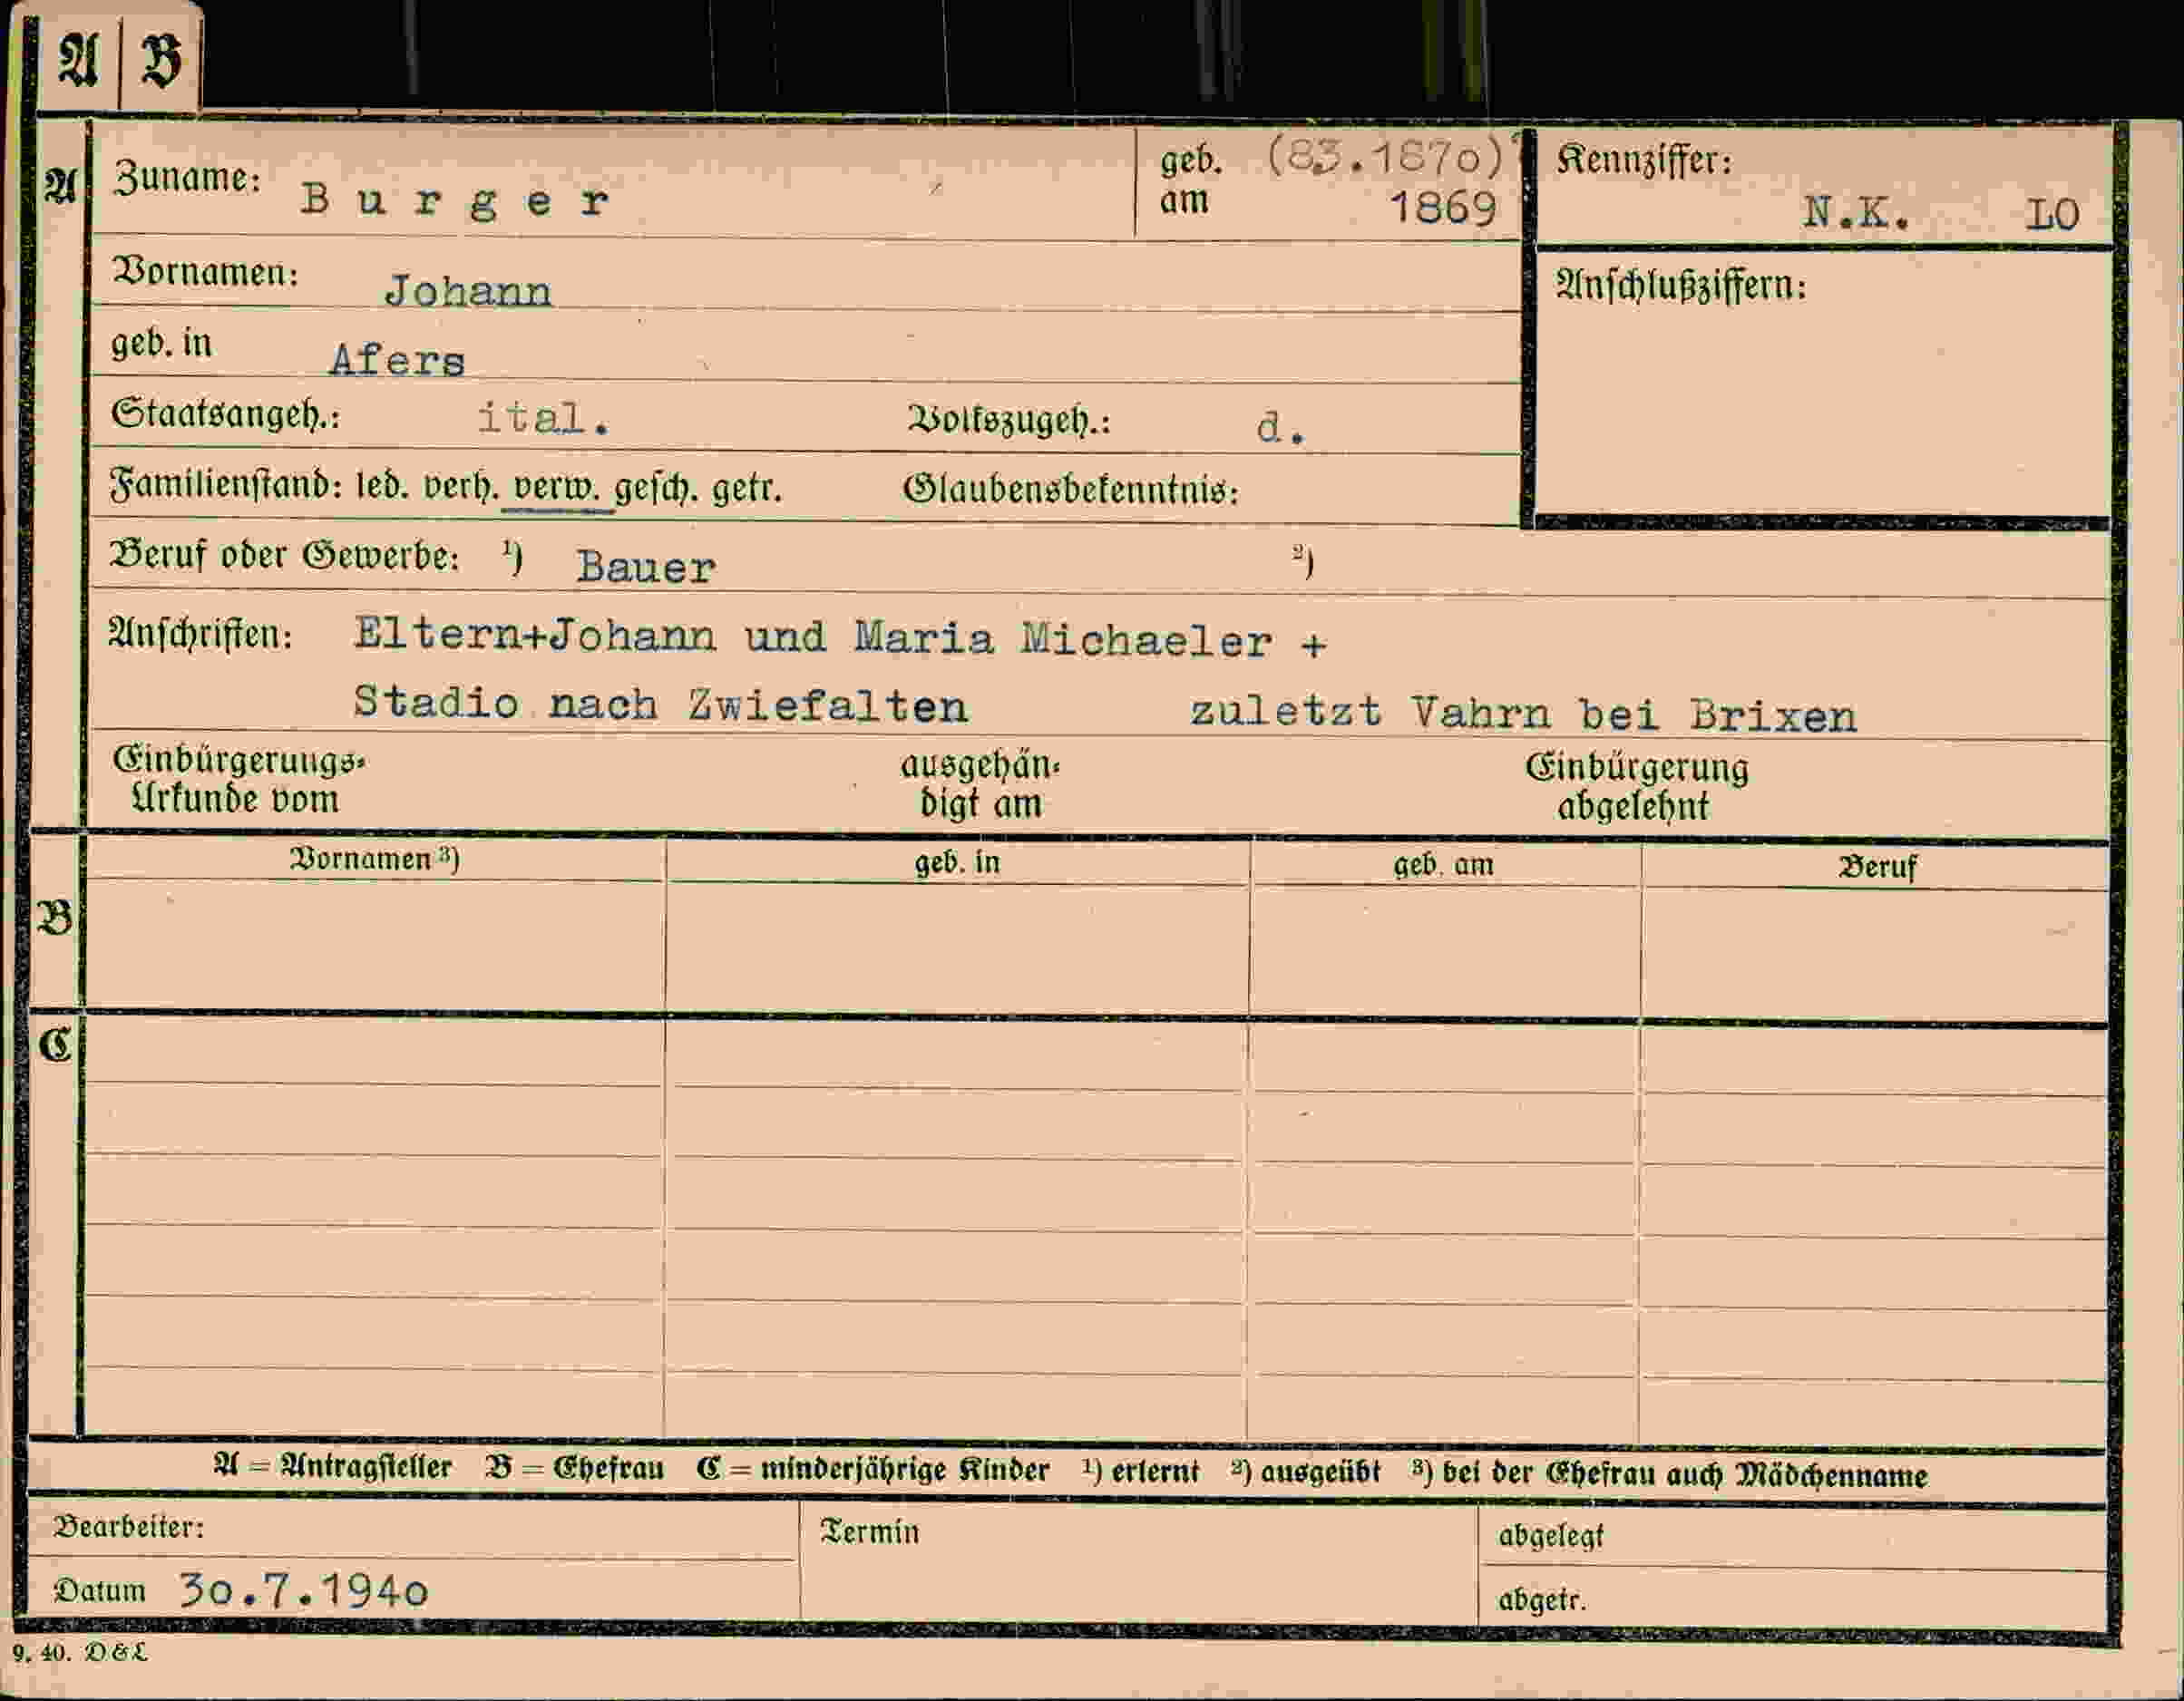 A B
A Zuname: Burger geb. am (83.1870)? 1869 Kennziffer: N.K. LO
Vornamen: Johann Anschlußziffern:
geb. in Afers
Staatsangeh.: ital. Volkszugeh.: d.
Familienstand: led. verh. verw. gesch. getr. Glaubensbekenntnis:
Beruf oder Gewerbe: ¹) Bauer ²)
Anschriften: Eltern+Johann und Maria Michaeler +
Stadio nach Zwiefalten zuletzt Vahrn bei Brixen
Einbürgerungs- ausgehän- Einbürgerung
Urkunde vom digt am abgelehnt
Vornamen ³) geb. in geb. am Beruf
B
C
A = Antragsteller B = Ehefrau C = minderjährige Kinder ¹) erlernt ²) ausgeübt ³) bei der Ehefrau auch Mädchenname
Bearbeiter: Termin abgelegt
Datum 30.7.1940 abgetr.
9. 40. D & L